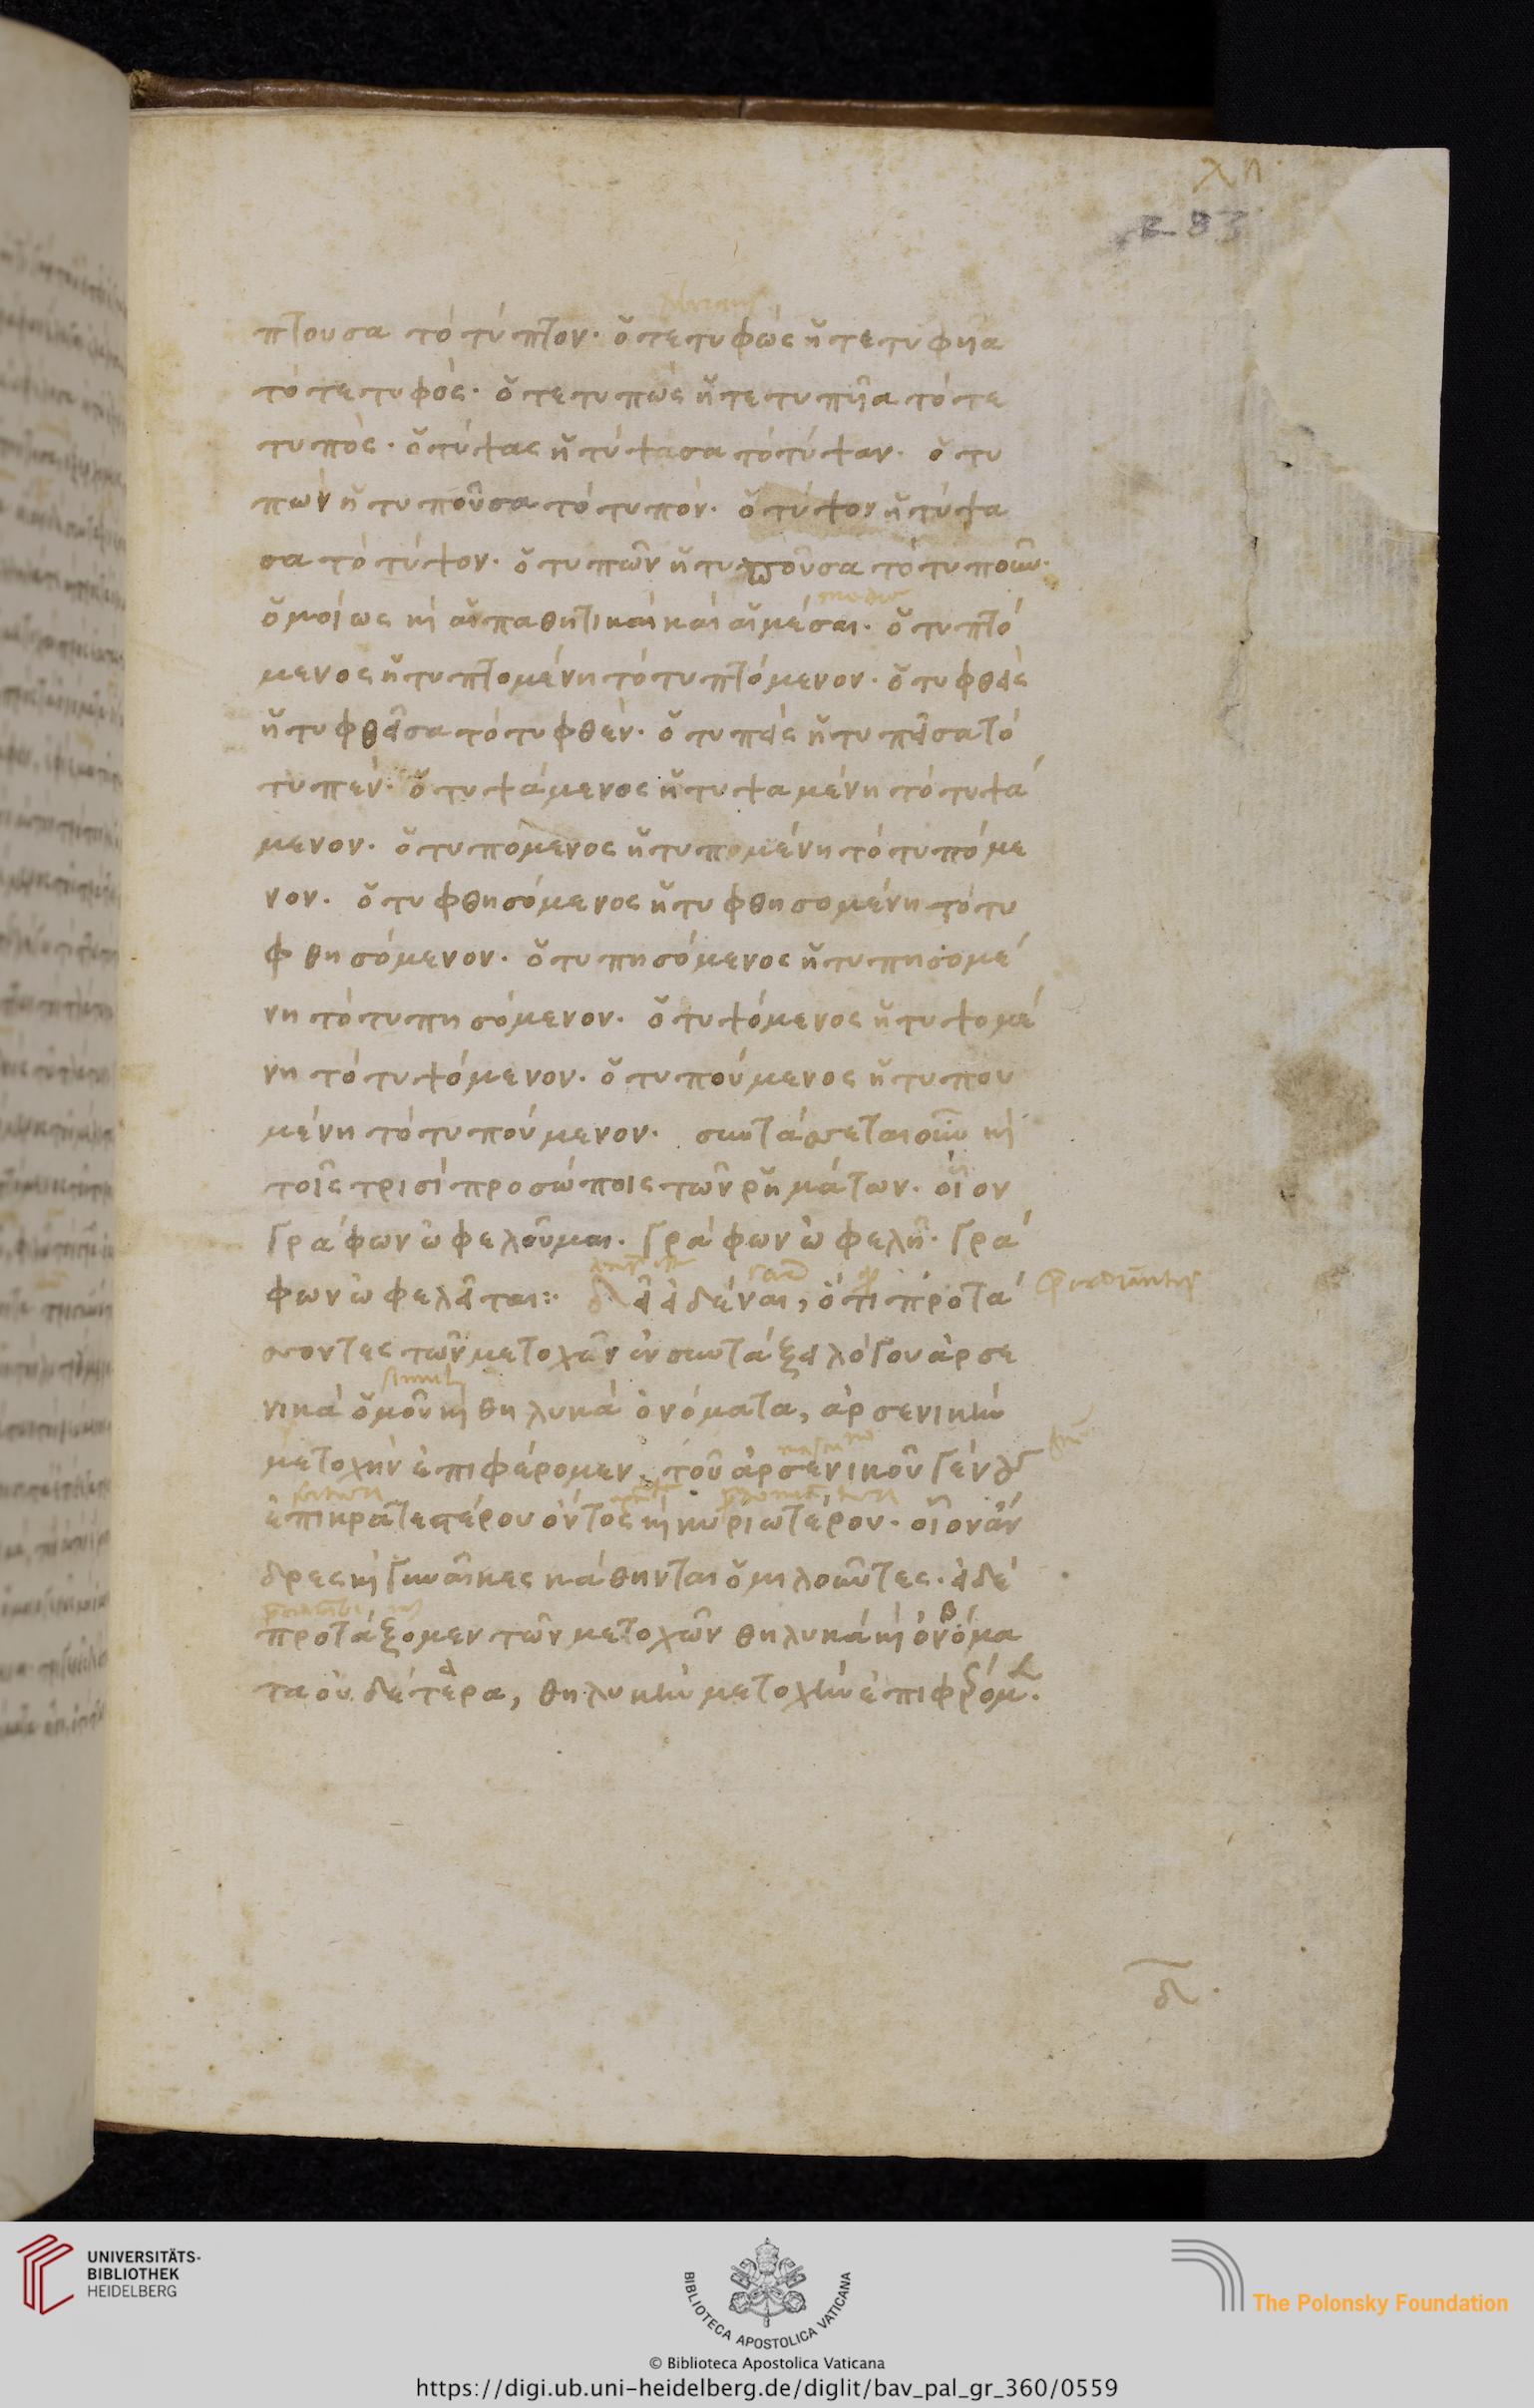 λη
283
πτουσα τὸ τύπτον· ὁ τετυφὼς ἡ τετυφυῖα
τὸ τετυφός· ὁ τετυπὼς ἡ τετυπυῖα τὸ τε
τυπὸς· ὁ τύψας ἡ τύψασα τὸ τύψαν· ὁ τυ
πὼν ἡ τυποῦσα τὸ τυπόν· ὁ τύψον ἡ τύψα
σα τὸ τύψον· ὁ τυπῶν ἡ τυποῦσα τὸ τυποῦν·
ὁμοίως κὶ αἱ παθητικαὶ καὶ αἱ μέσαι· ὁ τυπτό
μενος ἡ τυπτομένη τὸ τυπτόμενον· ὁ τυφθεὶς
ἡ τυφθεῖσα τὸ τυφθέν· ὁ τυπεὶς ἡ τυπεῖσα τὸ
τυπέν· ὁ τυψάμενος ἡ τυψαμένη τὸ τυψά
μενον· ὁ τυπόμενος ἡ τυπομένη τὸ τυπόμε
νον· ὁ τυφθησόμενος ἡ τυφθησομένη τὸ τυ
φθησόμενον· ὁ τυπησόμενος ἡ τυπησομέ
νη τὸ τυπησόμενον· ὁ τυψόμενος ἡ τυψομέ
νη τὸ τυψόμενον· ὁ τυπούμενος ἡ τυπου
μένη τὸ τυπούμενον· συντάσσεται οὖν κὶ
τοῖς τρισὶ προσώποις τῶν ῥημάτων· οἷον
γράφων ὠφελοῦμαι· γράφων ὠφελῇ· γρά
φων ὠφελεῖται:· δεῖ εἰδέναι, ὅτι προτά
σσοντες τῶν μετοχῶν ἐν συντάξει λόγου ἀρσε
simul
νικὰ ὁμοῦ κὶ θηλυκὰ ὀνόματα, ἀρσενικὴν
μετοχὴν ἐπιφέρομεν· τοῦ ἀρσενικοῦ γένους
ἐπικρατεστέρου ὄντος κὶ κυριωτέρου· οἷον ἄν
δρες κὶ γυναῖκες κάθηνται ὁμιλοῦντες· εἰ δὲ
προτάξομεν τῶν μετοχῶν θηλυκὰ κὶ ὀνόμα
τα οὐδέτερα, θηλυκὴν μετοχὴν ἐπιφέρομ.
δ·
UNIVERSITÄTS-
BIBLIOTHEK
HEIDELBERG
BIBLIOTECA APOSTOLICA VATICANA
The Polonsky Foundation
© Biblioteca Apostolica Vaticana
https://digi.ub.uni-heidelberg.de/diglit/bav_pal_gr_360/0559